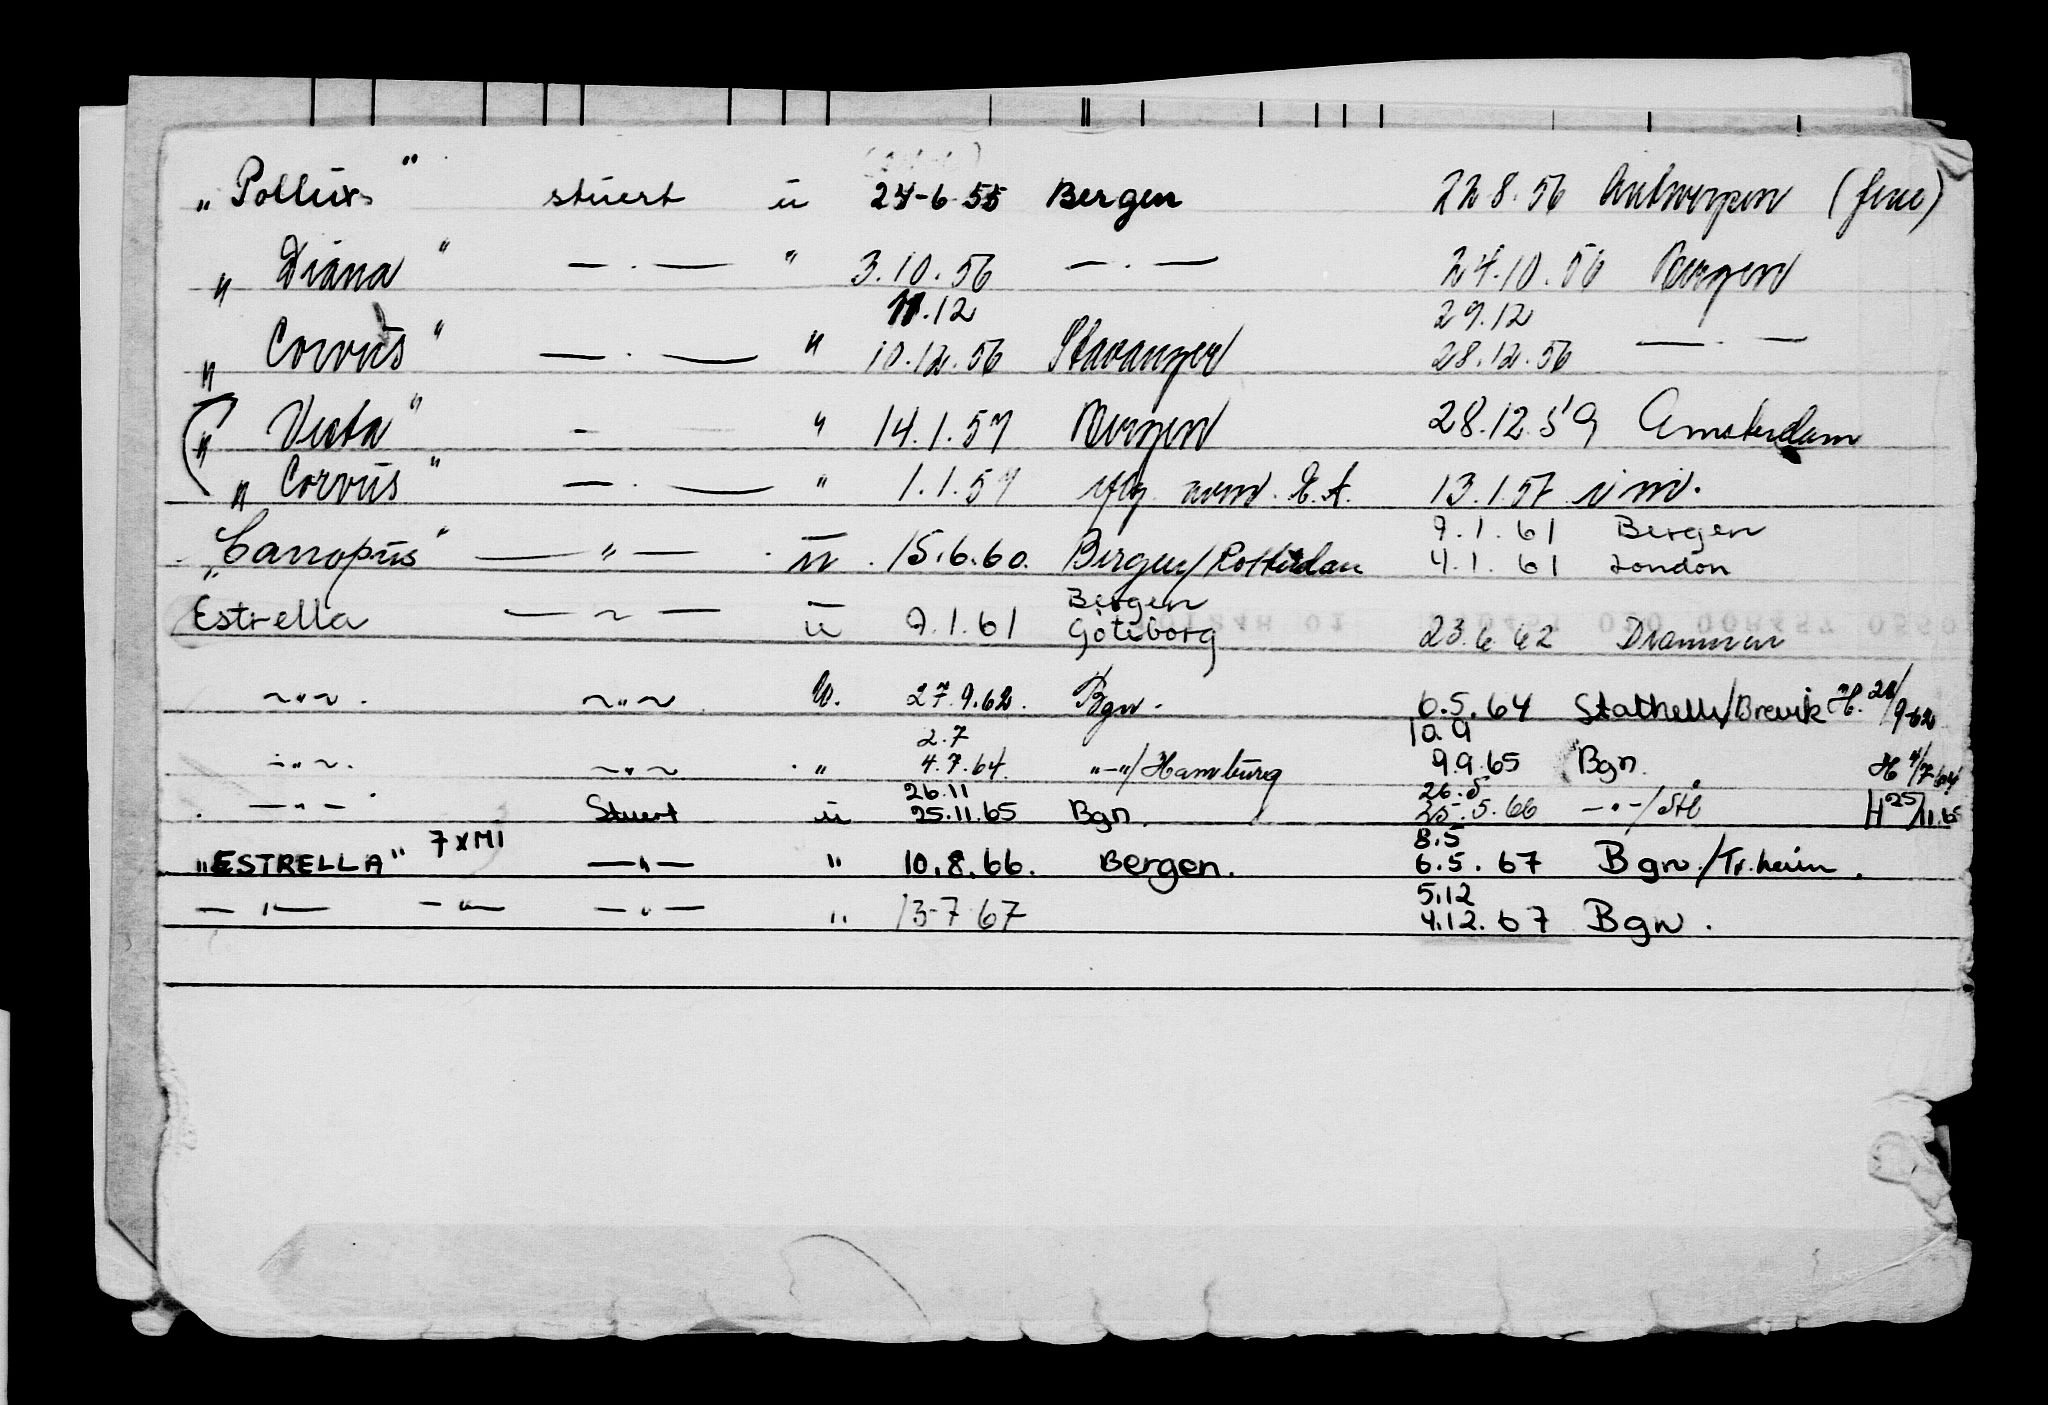 „Pollux" stuert u 24-6-55 Bergen 22.8.56 Antwerpen (ferie)
„Diana" — . — " 3.10.56 — . — 24.10.56 Bergen
11.12 29.12
„Corvus" — . — " 10.12.56 Stavanger 28.12.56 — . —
„Vesta" - " 14.1.57 Bergen 28.12.59 Amsterdam
„Corvus" — . — " 1.1.57 13.1.57
9.1.61 Bergen
„Canopus" — " — u . 15.6.60. Bergen/Rotterdam 4.1.61 London
Bergen
Estrella — ~ — u 9.1.61 Göteborg 23.6.62 Drammen
~"~ . ~"~ U. 27.9.62. Bgn. 6.5.64 Stathelle/Brevik H. 28/9-62
2.7 10.9
-"~ . ~"~ . " 4.7.64. "-"/Hamburg 9.9.65 Bgn. H 4/7.64
26.11 26.5
. — " — Stuert u 25.11.65 Bgn. 25.5.66 -"-/ H 25/11.65
8.5
„ESTRELLA" 7 x MI — " — " 10.8.66. Bergen. 6.5.67 Bgn./Tr.heim.
5.12
— " — — " — — " — " 13-7-67 4.12.67 Bgn.